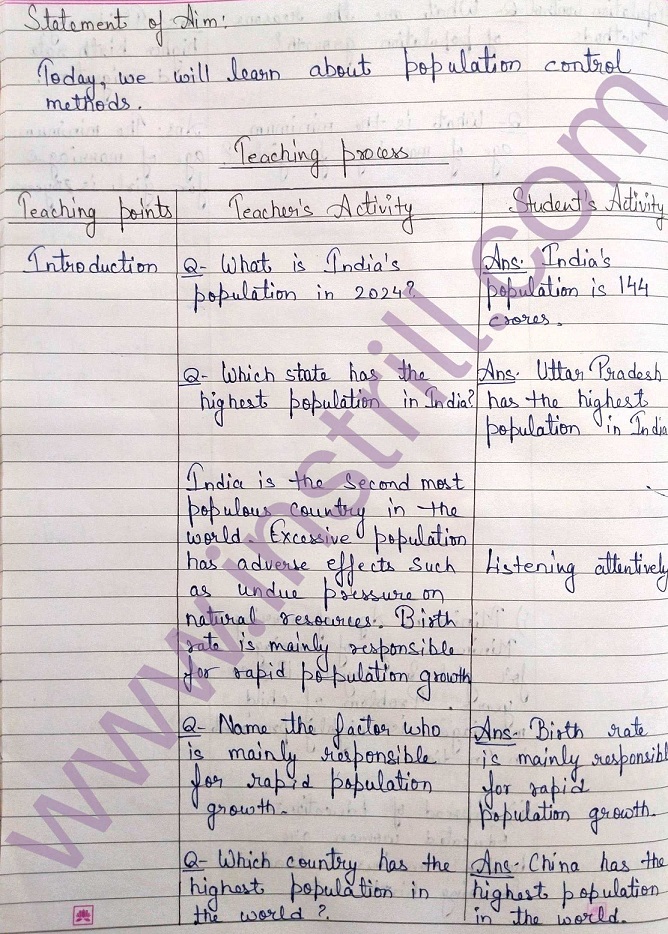 Statement of Aim:
Today, we will learn about population control
methods.
Teaching process
Teaching points
Teacher's Activity
Student's Activity
Introduction
Q- What is India's
population in 2024?
Ans. India's
population is 144
crores.
Q- Which state has the
highest population in India?
Ans. Uttar Pradesh
has the highest
population in India
India is the second most
populous country in the
world. Excessive population
has adverse effects such
as undue pressure on
natural resources. Birth
rate is mainly responsible
for rapid population growth
Listening attentively
Q- Name the factor who
is mainly responsible
for rapid population
growth.
Ans- Birth rate
is mainly responsibl
for rapid
population growth.
Q- Which country has the
highest population in
the world?
Ans- China has the
highest population
in the world.
www.instrill.com